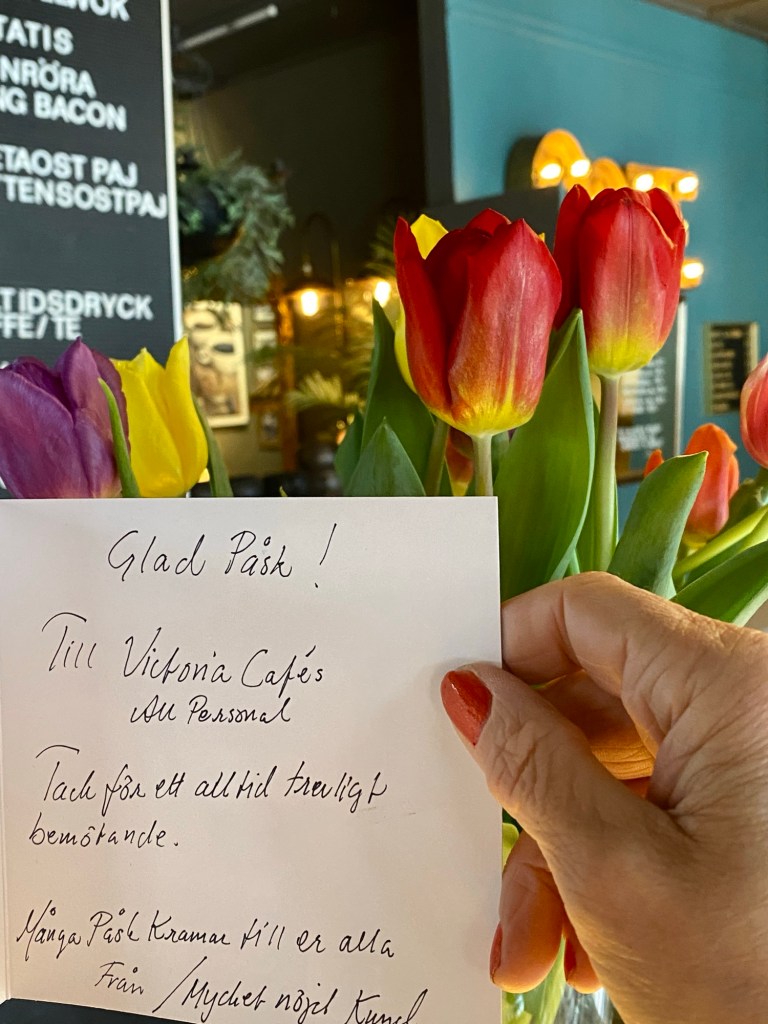 TATIS
NRÖRA
NG BACON
ETAOST PAJ
TTENSOSTPAJ
TIDSDRYCK
FFE/TE
Glad Påsk!
Till Victoria Cafés
All Personal
Tack för ett alltid trevligt
bemötande.
Många Påsk Kramar till er alla
Från /Mycket nöjd Kund